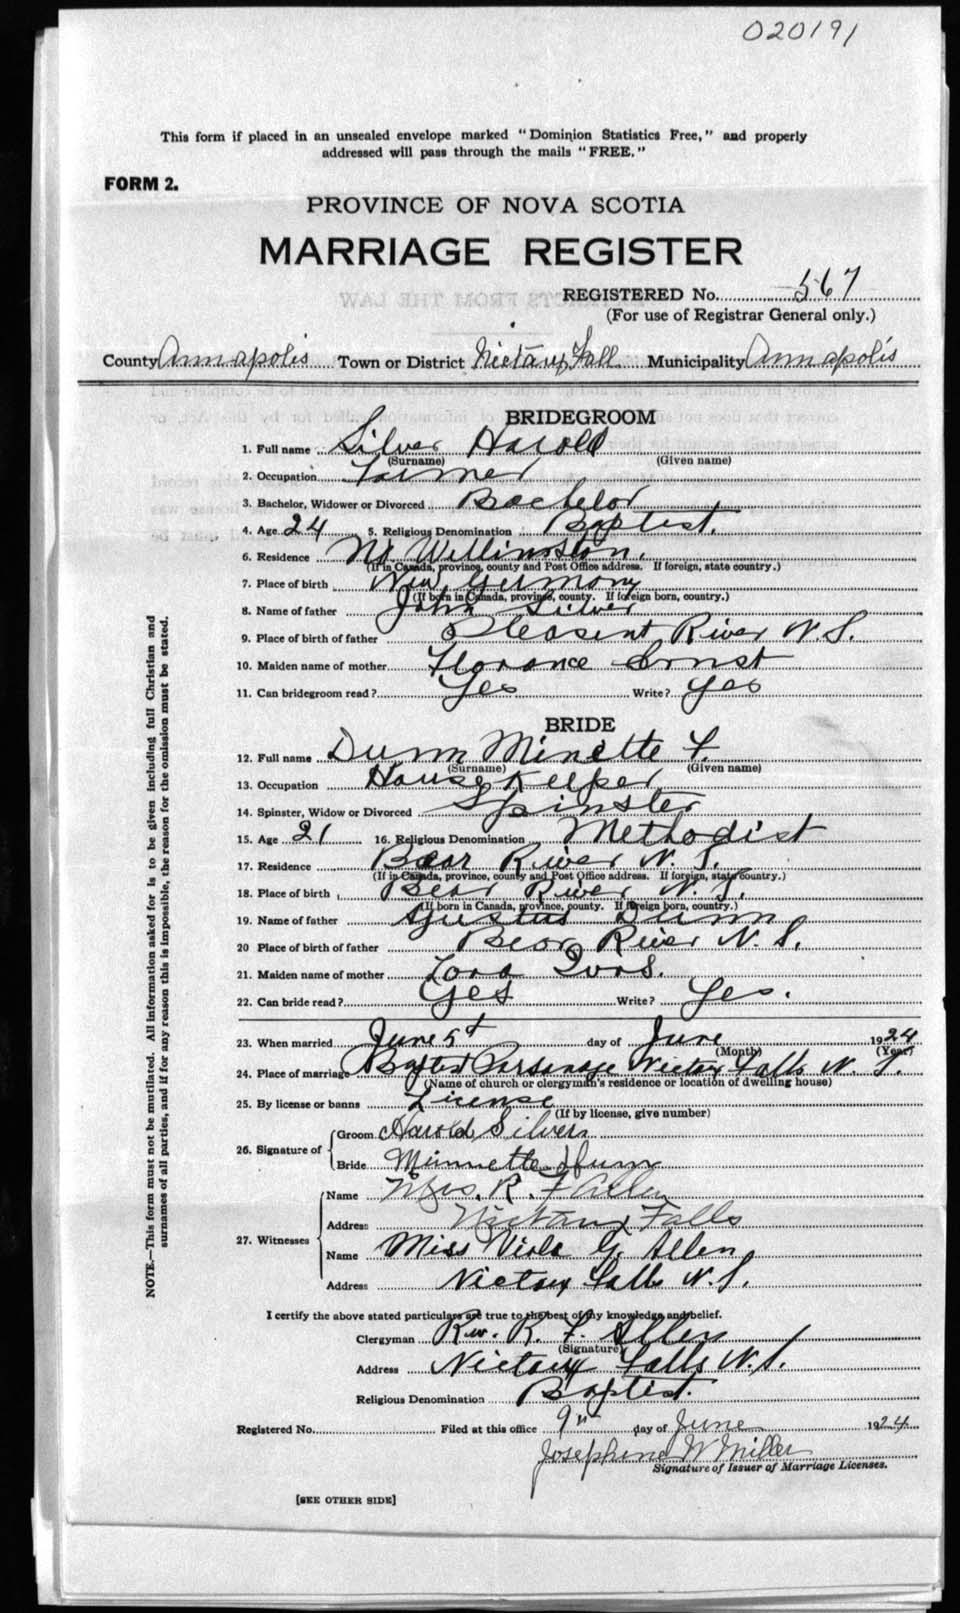 020191
This form if placed in an unsealed envelope marked "Dominion Statistics Free," and properly
addressed will pass through the mails "FREE."
FORM 2.
PROVINCE OF NOVA SCOTIA
MARRIAGE REGISTER
REGISTERED No. 567
(For use of Registrar General only.)
County Annapolis Town or District Nictaux Fall Municipality Annapolis
BRIDEGROOM
1. Full name Silver Harold
(Surname) (Given name)
2. Occupation Farmer
3. Bachelor, Widower or Divorced Bachelor
4. Age 24 5. Religious Denomination Baptist.
6. Residence
(If in Canada, province, county and Post Office address. If foreign, state country.)
7. Place of birth New Germany
(If born in Canada, province, county. If foreign born, country.)
8. Name of father John Silver
9. Place of birth of father Pleasent River N.S.
10. Maiden name of mother Florance Ernst
11. Can bridegroom read? Yes Write? yes
BRIDE
12. Full name Dunn Minette F.
(Surname) (Given name)
13. Occupation House Keeper
14. Spinster, Widow or Divorced Spinster
15. Age 21 16. Religious Denomination Methodist
17. Residence Bear River N.S.
(If in Canada, province, county and Post Office address. If foreign, state country.)
18. Place of birth Bear River N.S.
(If born in Canada, province, county. If foreign born, country.)
19. Name of father Dunn
20 Place of birth of father Bear River N.S.
21. Maiden name of mother
22. Can bride read? Yes Write? Yes.
23. When married June 5 day of June 1924
(Month) (Year)
24. Place of marriage Baptist Parsonage Nictaux Falls N.S.
(Name of church or clergyman's residence or location of dwelling house)
25. By license or banns License
(If by license, give number)
26. Signature of Groom Harold Silvers
Bride Minnette Dunn
27. Witnesses Name Mrs. R. F Allen
Address Nictaux Falls
Name Miss Viola G. Allen
Address Nictaux Falls N.S.
I certify the above stated particulars are true to the best of my knowledge and belief.
Clergyman Rev. R. F. Allen
(Signature)
Address Nictaux Falls N.S.
Religious Denomination Baptist.
Registered No. Filed at this office 9th day of June 1924
Josephine W Miller
Signature of Issuer of Marriage Licenses.
[SEE OTHER SIDE]
NOTE.—This form must not be mutilated. All information asked for is to be given including full Christian and
surnames of all parties, and if for any reason this is impossible, the reason for the omission must be stated.